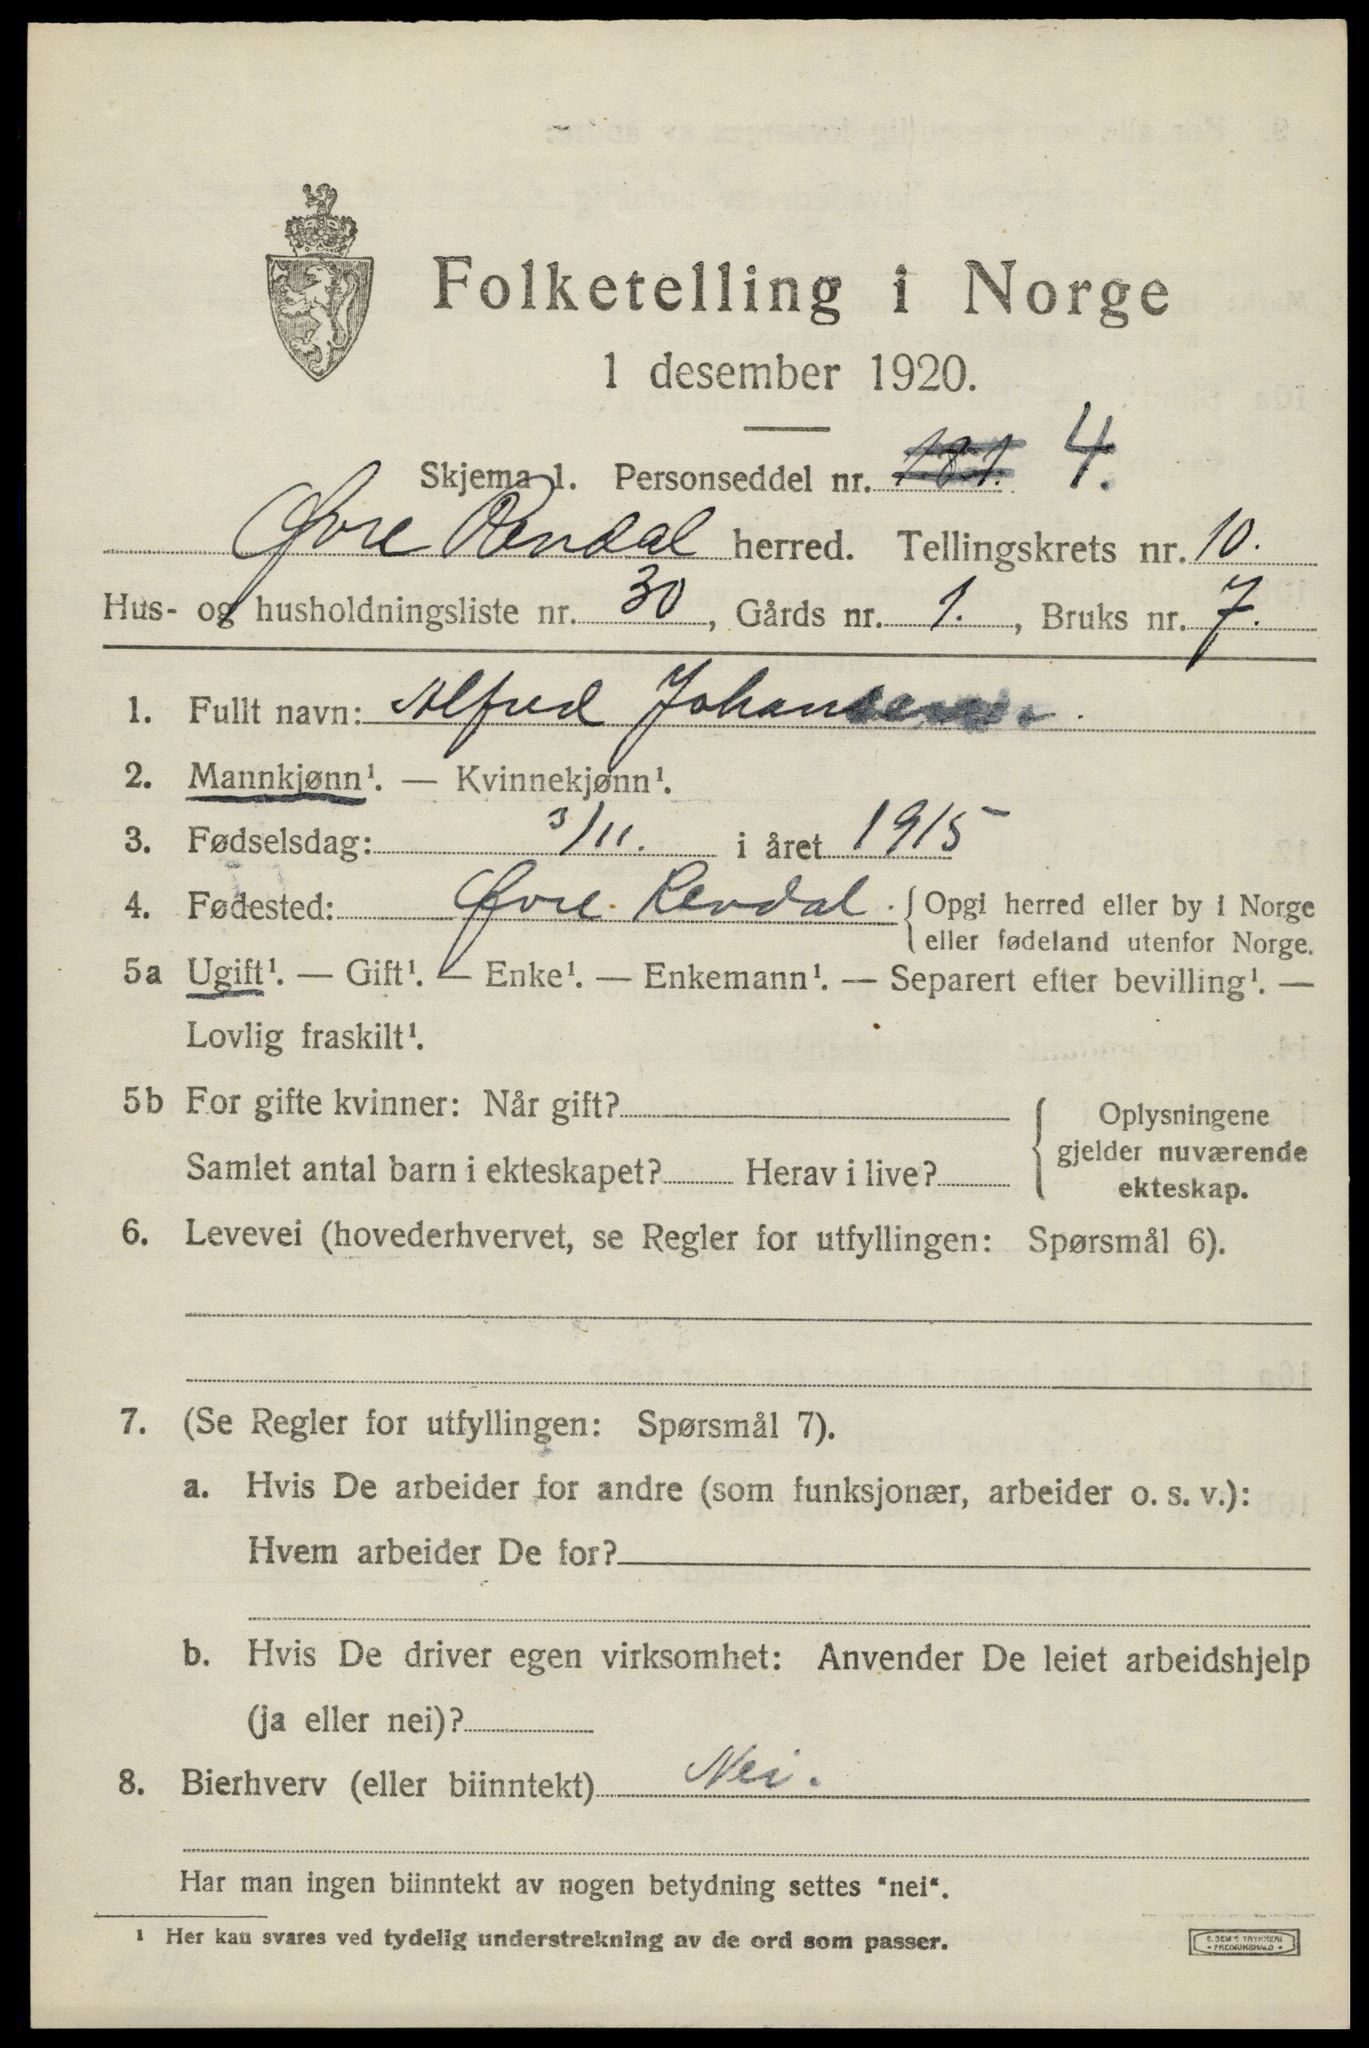 Folketelling i Norge
1 desember 1920.
Skjema 1. Personseddel nr. 181. 4.
Øvre Rendal herred. Tellingskrets nr. 10.
Hus- og husholdningsliste nr. 30, Gårds nr. 1., Bruks nr. 7.
1. Fullt navn: Alfred Johansen.
2. Mannkjønn¹. — Kvinnekjønn¹.
3. Fødselsdag: 3/11. i året 1915
4. Fødested: Øvre Rendal. { Opgi herred eller by i Norge
eller fødeland utenfor Norge.
5a Ugift¹. — Gift¹. — Enke¹. — Enkemann¹. — Separert efter bevilling¹. —
Lovlig fraskilt¹.
5b For gifte kvinner: Når gift?
Samlet antal barn i ekteskapet? Herav i live?
{ Oplysningene
gjelder nuværende
ekteskap.
6. Levevei (hovederhvervet, se Regler for utfyllingen: Spørsmål 6).
7. (Se Regler for utfyllingen: Spørsmål 7).
a. Hvis De arbeider for andre (som funksjonær, arbeider o. s. v.):
Hvem arbeider De for?
b. Hvis De driver egen virksomhet: Anvender De leiet arbeidshjelp
(ja eller nei)?
8. Bierhverv (eller biinntekt) Nei.
Har man ingen biinntekt av nogen betydning settes "nei".
¹ Her kan svares ved tydelig understrekning av de ord som passer.
E. SEM'S TRYKKERI
• FREDRIKSHALD •